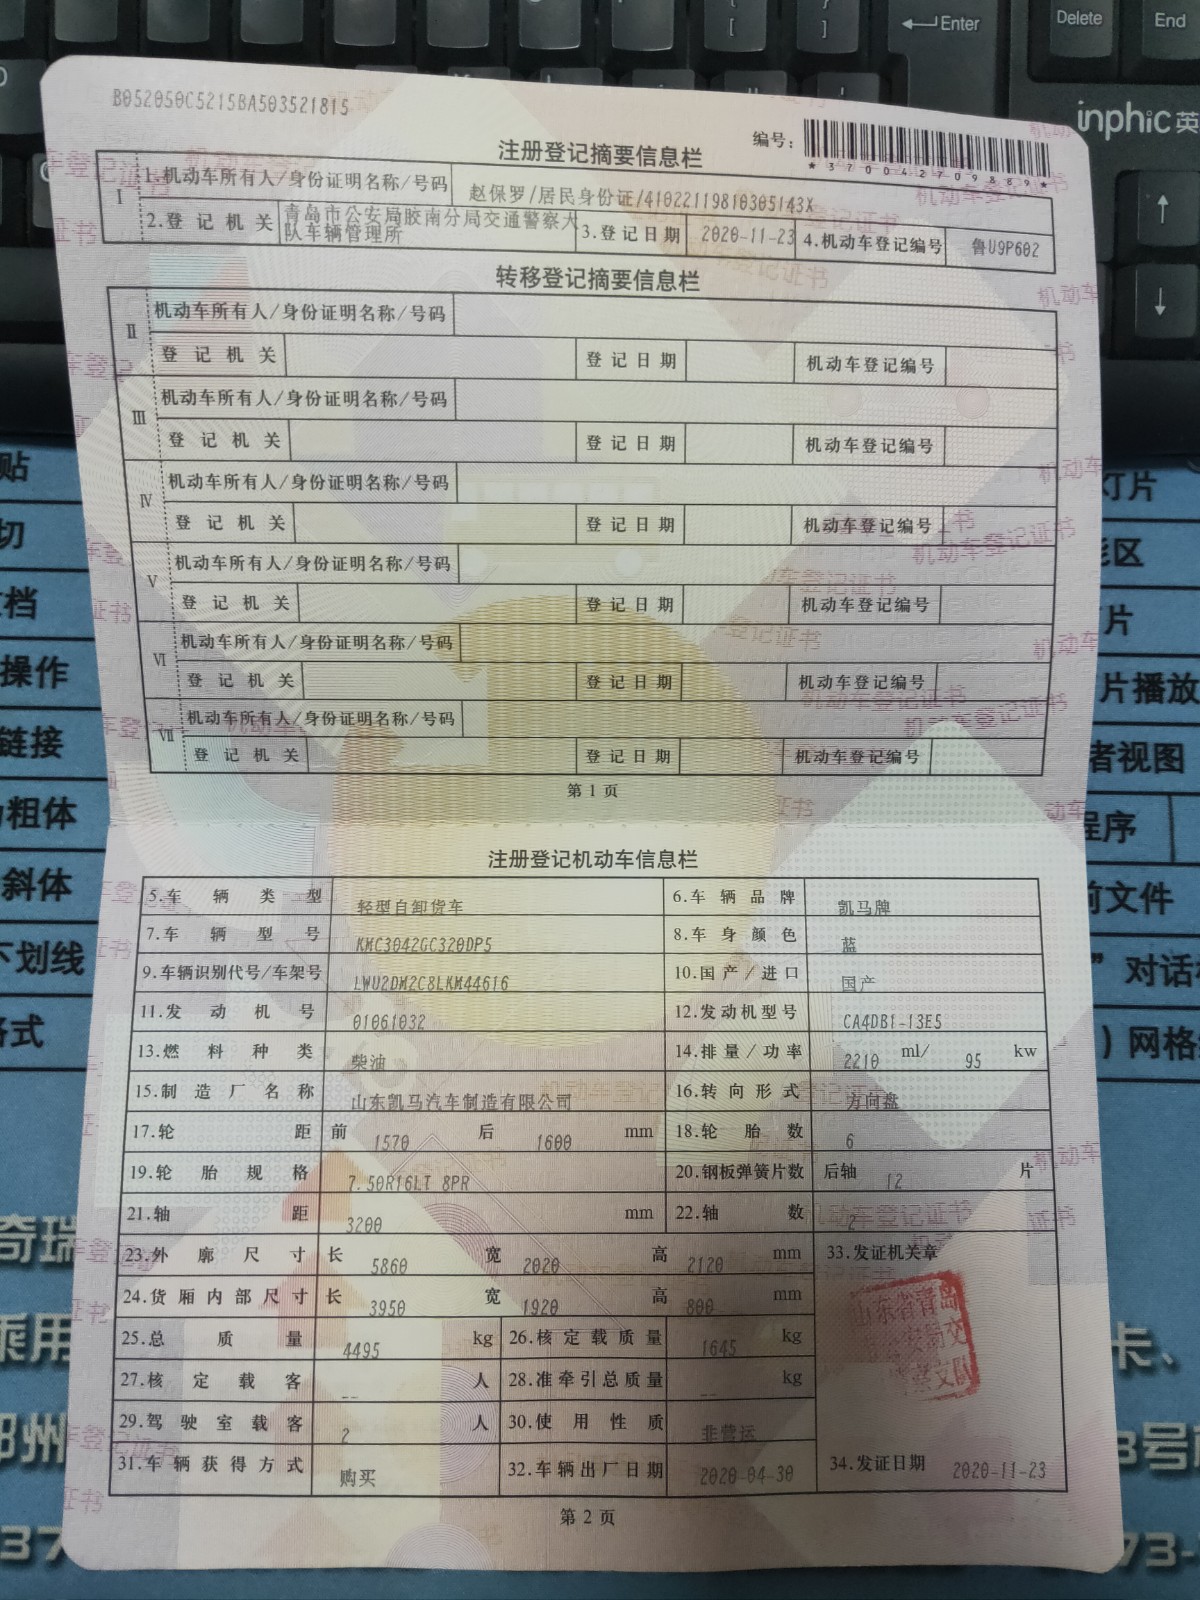 Enter
Delete
End
inphic英
B052050C5215BA503521815
编号：
*370042709889*
注册登记摘要信息栏
Ⅰ 1.机动车所有人/身份证明名称/号码 赵保罗/居民身份证/41022119810305143X
2.登记机关 青岛市公安局胶南分局交通警察大队车辆管理所 3.登记日期 2020-11-23 4.机动车登记编号 鲁U9P602
转移登记摘要信息栏
Ⅱ 机动车所有人/身份证明名称/号码
登记机关 登记日期 机动车登记编号
Ⅲ 机动车所有人/身份证明名称/号码
登记机关 登记日期 机动车登记编号
Ⅳ 机动车所有人/身份证明名称/号码
登记机关 登记日期 机动车登记编号
Ⅴ 机动车所有人/身份证明名称/号码
登记机关 登记日期 机动车登记编号
Ⅵ 机动车所有人/身份证明名称/号码
登记机关 登记日期 机动车登记编号
Ⅶ 机动车所有人/身份证明名称/号码
登记机关 登记日期 机动车登记编号
第1页
注册登记机动车信息栏
5.车辆类型 轻型自卸货车 6.车辆品牌 凯马牌
7.车辆型号 KMC3042GC320DP5 8.车身颜色 蓝
9.车辆识别代号/车架号 LWU2DM2C8LKM44616 10.国产/进口 国产
11.发动机号 01061032 12.发动机型号 CA4DB1-13E5
13.燃料种类 柴油 14.排量/功率 2210 ml/ 95 kw
15.制造厂名称 山东凯马汽车制造有限公司 16.转向形式 方向盘
17.轮距 前 1570 后 1600 mm 18.轮胎数 6
19.轮胎规格 7.50R16LT 8PR 20.钢板弹簧片数 后轴 12 片
21.轴距 3200 mm 22.轴数 2
23.外廓尺寸 长 5860 宽 2020 高 2120 mm 33.发证机关章
24.货厢内部尺寸 长 3950 宽 1920 高 800 mm
25.总质量 4495 kg 26.核定载质量 1645 kg
27.核定载客 -- 人 28.准牵引总质量 -- kg
29.驾驶室载客 2 人 30.使用性质 非营运
31.车辆获得方式 购买 32.车辆出厂日期 2020-04-30 34.发证日期 2020-11-23
第2页
贴
切
档
操作
链接
粗体
斜体
下划线
格式
灯片
区
片
片播放
者视图
程序
前文件
”对话
）网格
奇瑞
乘用
郑州
37
卡、
3号
73-